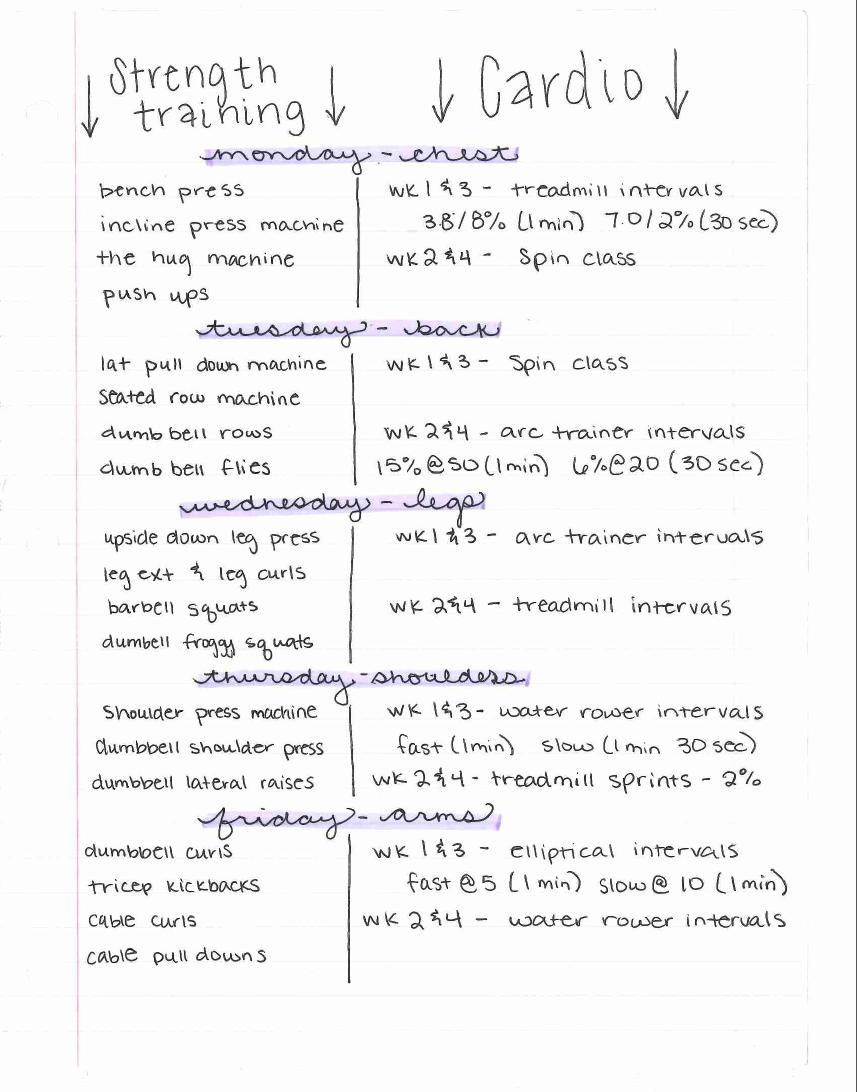 ↓ Strength training ↓
↓ Cardio ↓
monday - chest
bench press
incline press machine
the hug machine
push ups
wk 1 & 3 - treadmill intervals
3.8/8% (1 min) 7.0/2% (30 sec)
wk 2 & 4 - Spin class
tuesday - back
lat pull down machine
seated row machine
dumbbell rows
dumbbell flies
wk 1 & 3 - Spin class
wk 2 & 4 - arc trainer intervals
15% @ 50 (1 min) 6% @ 20 (30 sec)
wednesday - legs
upside down leg press
leg ext & leg curls
barbell squats
dumbell froggy squats
wk 1 & 3 - arc trainer intervals
wk 2 & 4 - treadmill intervals
thursday - shoulders
Shoulder press machine
dumbbell shoulder press
dumbbell lateral raises
wk 1 & 3 - water rower intervals
fast (1 min) slow (1 min 30 sec)
wk 2 & 4 - treadmill sprints - 2%
friday - arms
dumbbell curls
tricep kickbacks
cable curls
cable pull downs
wk 1 & 3 - elliptical intervals
fast @ 5 (1 min) slow @ 10 (1 min)
wk 2 & 4 - water rower intervals